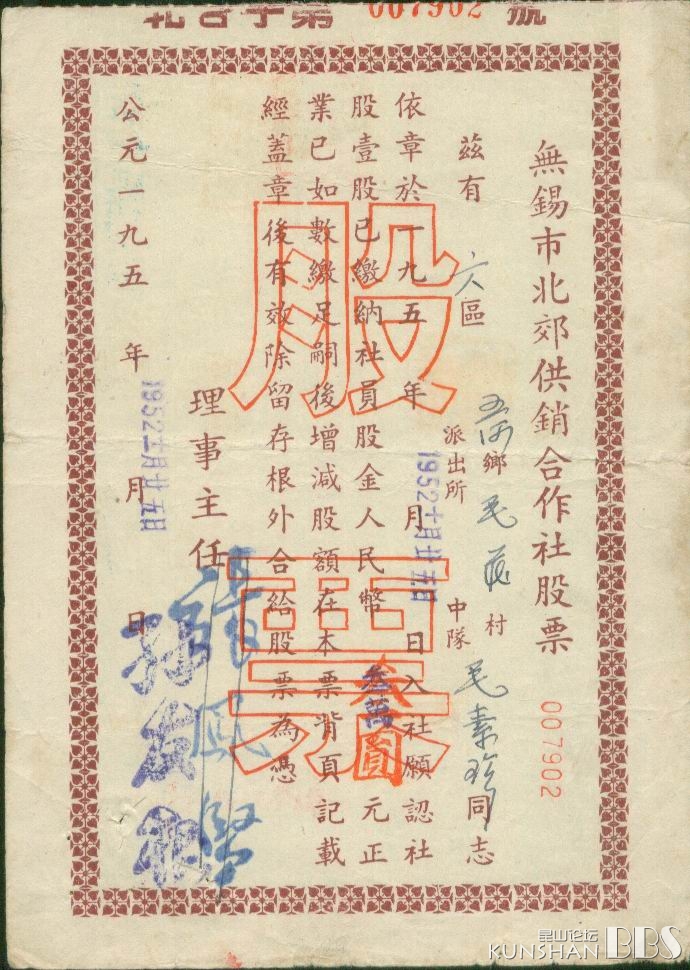 北合字第 007902 號
無錫市北郊供銷合作社股票
007902
茲有 六區 鄉 派出所 毛 村 中隊 毛素珍同志
依章於一九五 年 月 日入社願認社
1952十月廿五日
股壹股已繳納社員股金人民幣 叁萬圓 元正
業已如數繳足嗣後增減股額在本票背頁記載
經蓋章後有效除留存根外合給股票為憑
股票
理事主任
公元一九五 年 月 日
昆山论坛
KUNSHAN BBS